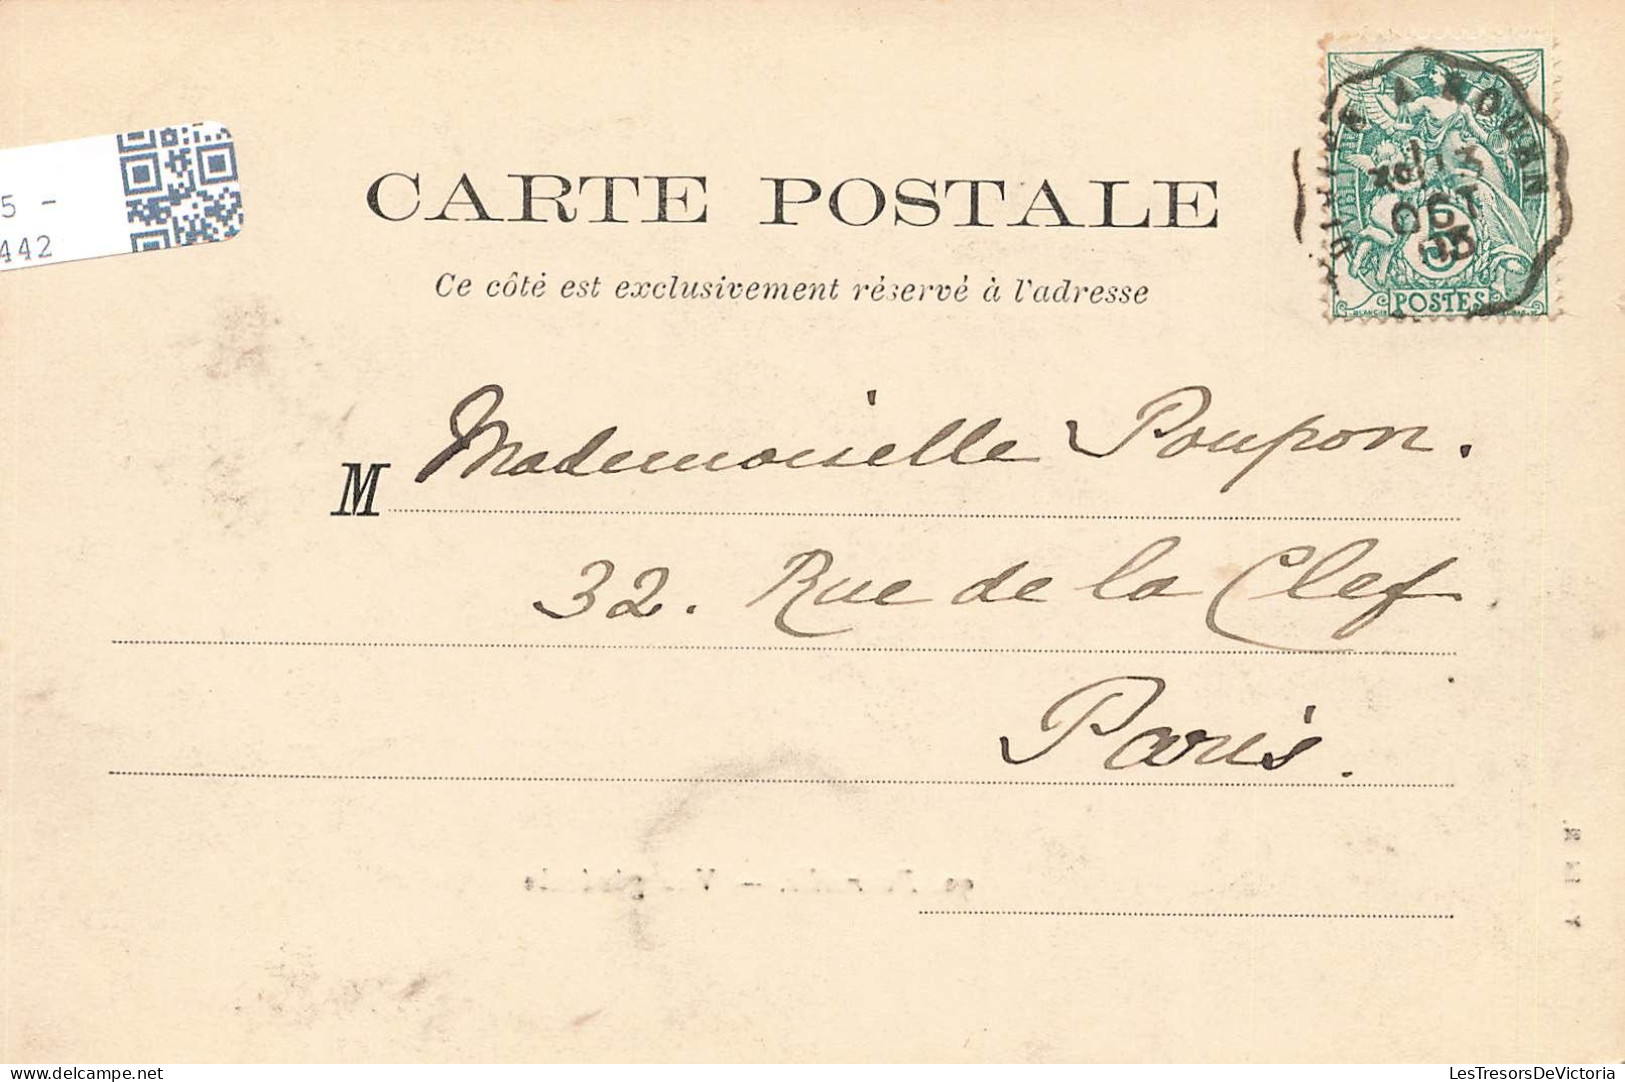 5 -
442
CARTE POSTALE
Ce côté est exclusivement réservé à l'adresse
A ROUEN
13
OCT
03
5
POSTES
M Mademoiselle Poupon.
32. Rue de la Clef
Paris.
LesTresorsDeVictoria